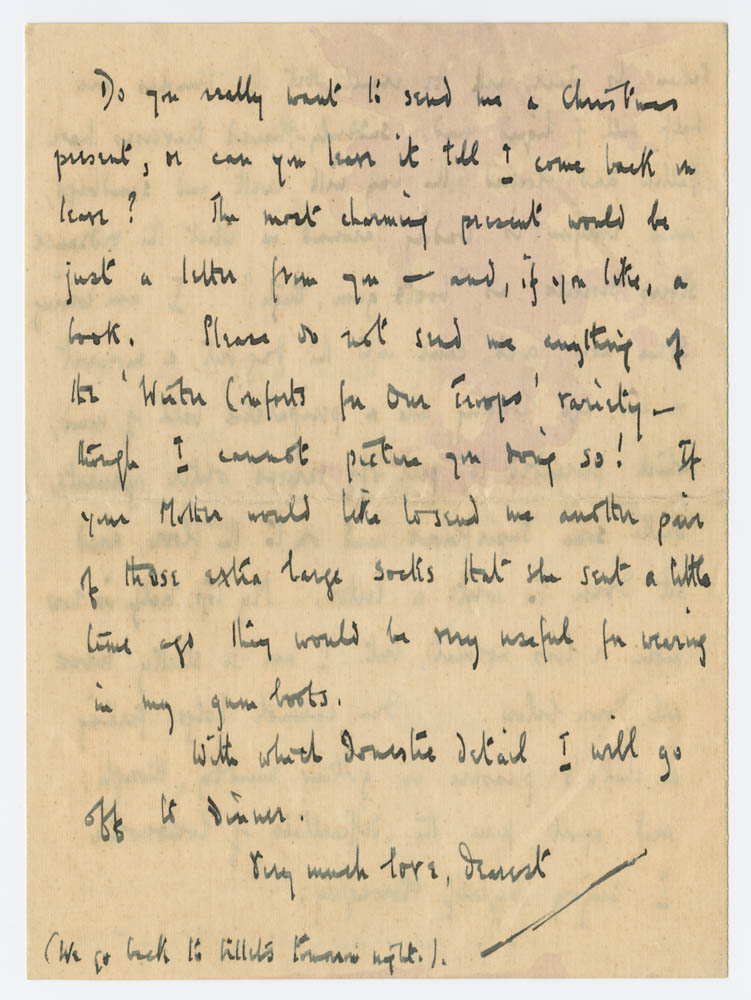 Do you really want to send me a Christmas
present, or can you leave it till I come back on
leave? The most charming present would be
just a letter from you — and, if you like, a
book. Please do not send me anything of
the 'Winter Comforts for Our Troops' variety —
though I cannot picture you doing so! If
your Mother would like to send me another pair
of those extra large socks that she sent a little
time ago they would be very useful for wearing
in my gum boots.
With which domestic detail I will go
off to dinner.
Very much love, dearest
(We go back to billets tomorrow night.).